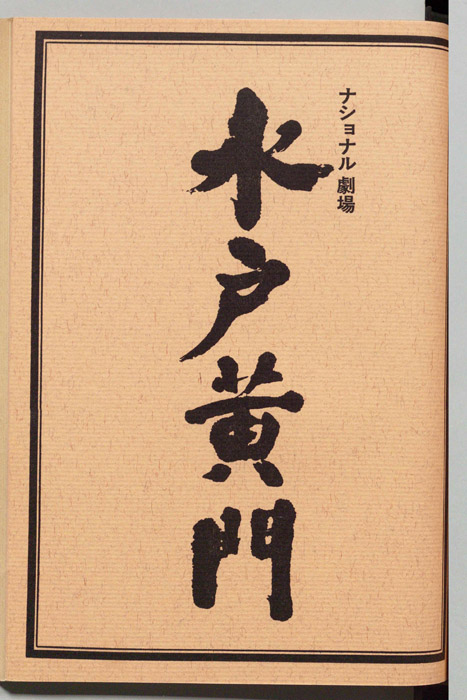 ナショナル 劇場
水戸黄門